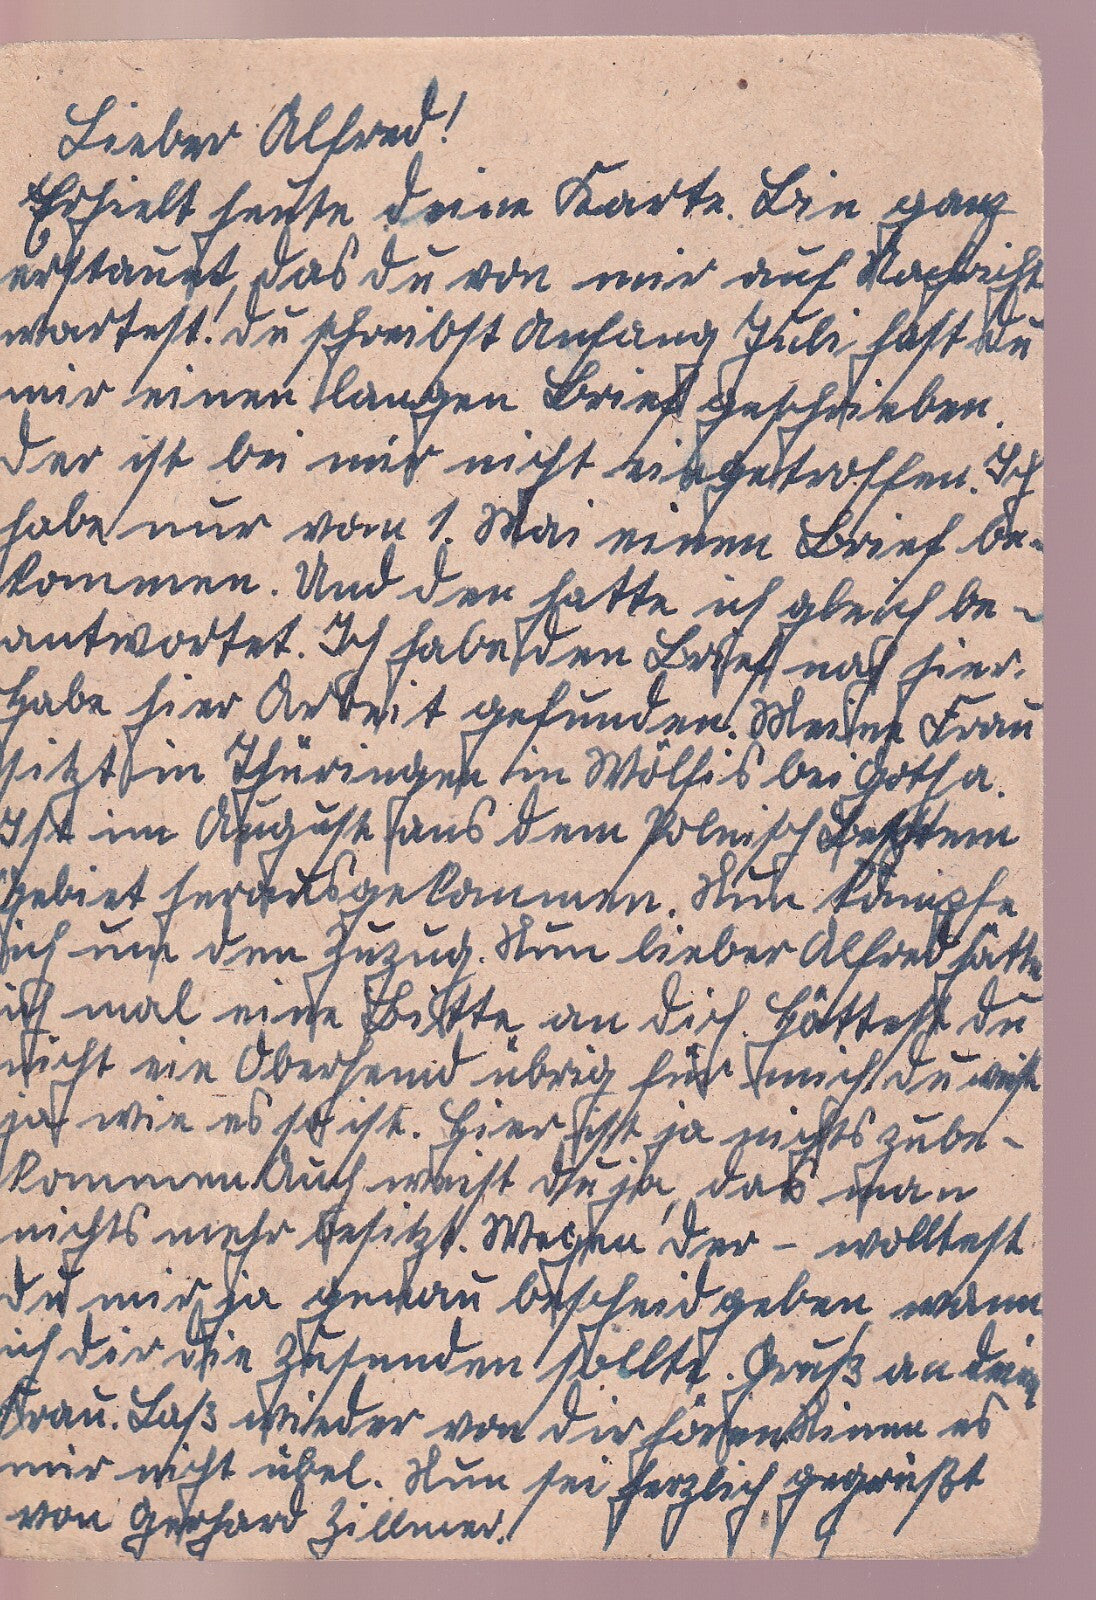 Lieber Alfred!
Erhielt heute deine Karte. Bin ganz
erstaunt, das du von mir auf Nachricht
wartest. Du schreibst Anfang Juli hast du
mir einen langen Brief geschrieben.
Der ist bei mir nicht eingetroffen. Ich
habe nur vom 1. Mai einen Brief be-
kommen. Und den hatte ich gleich be-
antwortet. Ich habe den Brief noch hier.
Habe hier Arbeit gefunden. Meine Frau
sitzt in Thüringen in Wölfis bei Gotha.
Ist im August aus dem Polnisch besetztem
gebiet herausgekommen. Nun kämpfe
ich um den Zuzug. Nun lieber Alfred hätte
ich mal eine Bitte an dich. Hättest du
nicht ein Oberhemd übrig für mich, du weist
ja wie es so ist. Hier ist ja nichts zube-
kommen Auch weist du ja, das man
nichts mehr besitzt. Wegen der – wolltest
du mir ja genau bescheid geben, wann
ich dir die Zusenden sollte. Gruß an deine
Frau. Laß wieder von dir hören Nimm es
mir nicht übel. Nun sei herzlich gegrüßt
von Gerhard Zillmer.